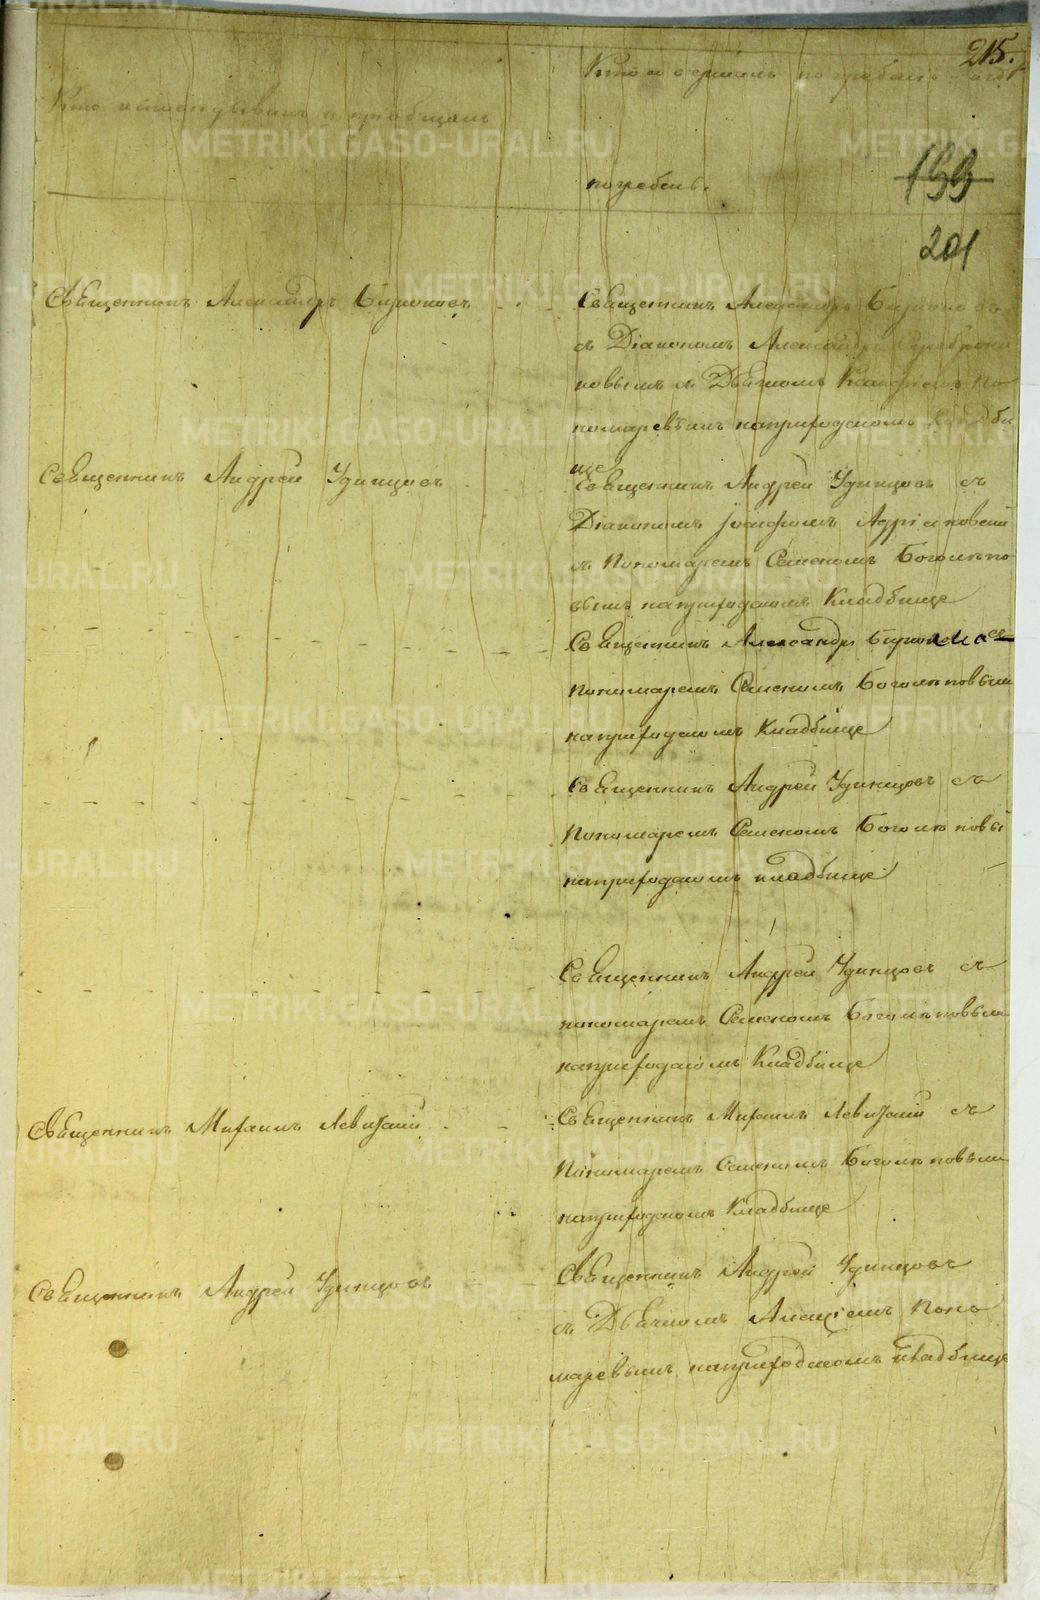 215.
Кто исповѣдывалъ и пріобщалъ
Кто совершалъ погребеніе и гдѣ
погребенъ.
199
201
Священникъ Александръ Бирюковъ
Священникъ Александръ Бирюковъ
съ Діакономъ Александромъ
новымъ и Дьячкомъ По
номаревымъ на приходскомъ кладби
ще
Священникъ Андрей Удинцовъ
Священникъ Андрей Удинцовъ съ
Діакономъ Іоасафомъ Адріановскимъ
и Пономаремъ Семеномъ Боголѣпо
вымъ на приходскомъ Кладбище
Священникъ Александръ Бирюковъ съ
Пономаремъ Семеномъ Боголѣповымъ
на приходскомъ Кладбище
Священникъ Андрей Удинцовъ съ
Пономаремъ Семеномъ Боголѣповы
на приходскомъ кладбище
Священникъ Андрей Удинцовъ съ
пономаремъ Семеномъ Боголѣповымъ
на приходскомъ Кладбище
Священникъ Михаилъ Левитскій
Священникъ Михаилъ Левитскій съ
Пономаремъ Семеномъ Боголѣповымъ
на приходскомъ Кладбище
Священникъ Андрей Удинцовъ
Священникъ Андрей Удинцовъ
съ Дьячкомъ Алексѣемъ Поно
маревымъ на приходскомъ кладбище
METRIKI.GASO-URAL.RU